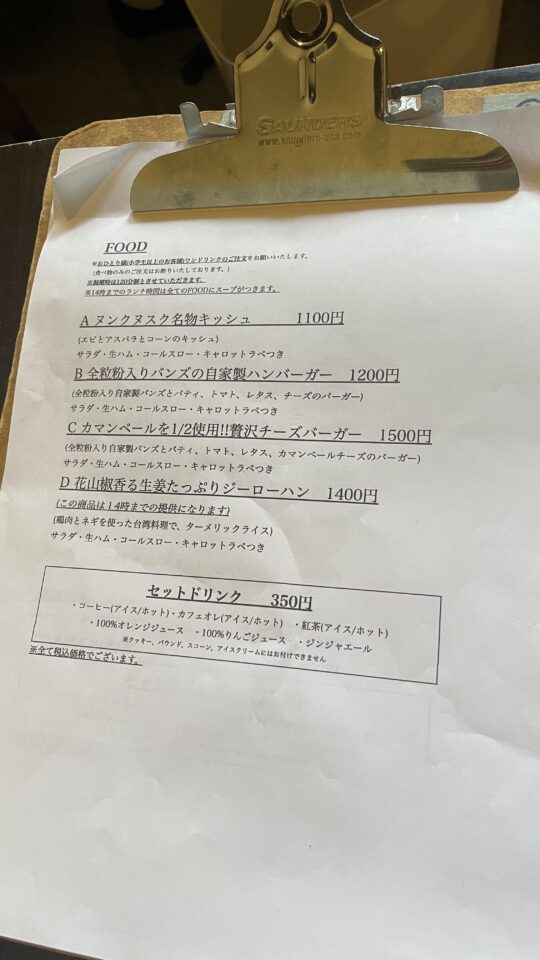 SAUNDERS
www.saunders-usa.com
FOOD
※おひとり様(小学生以上のお客様)ワンドリンクのご注文をお願いいたします。
(食べ物のみのご注文はお断りいたしております。)
※混雑時は120分制とさせていただきます。
※14時までのランチ時間は全てのFOODにスープがつきます。
A ヌンクヌスク名物キッシュ 1100円
(エビとアスパラとコーンのキッシュ)
サラダ・生ハム・コールスロー・キャロットラペつき
B 全粒粉入りバンズの自家製ハンバーガー 1200円
(全粒粉入り自家製バンズとパティ、トマト、レタス、チーズのバーガー)
サラダ・生ハム・コールスロー・キャロットラペつき
C カマンベールを1/2使用!!贅沢チーズバーガー 1500円
(全粒粉入り自家製バンズとパティ、トマト、レタス、カマンベールチーズのバーガー)
サラダ・生ハム・コールスロー・キャロットラペつき
D 花山椒香る生姜たっぷりジーローハン 1400円
(この商品は14時までの提供になります)
(鶏肉とネギを使った台湾料理で、ターメリックライス)
サラダ・生ハム・コールスロー・キャロットラペつき
セットドリンク 350円
・コーヒー(アイス/ホット)・カフェオレ(アイス/ホット) ・紅茶(アイス/ホット)
・100%オレンジジュース ・100%りんごジュース ・ジンジャエール
※クッキー、パウンド、スコーン、アイスクリームにはお付けできません
※全て税込価格でございます。